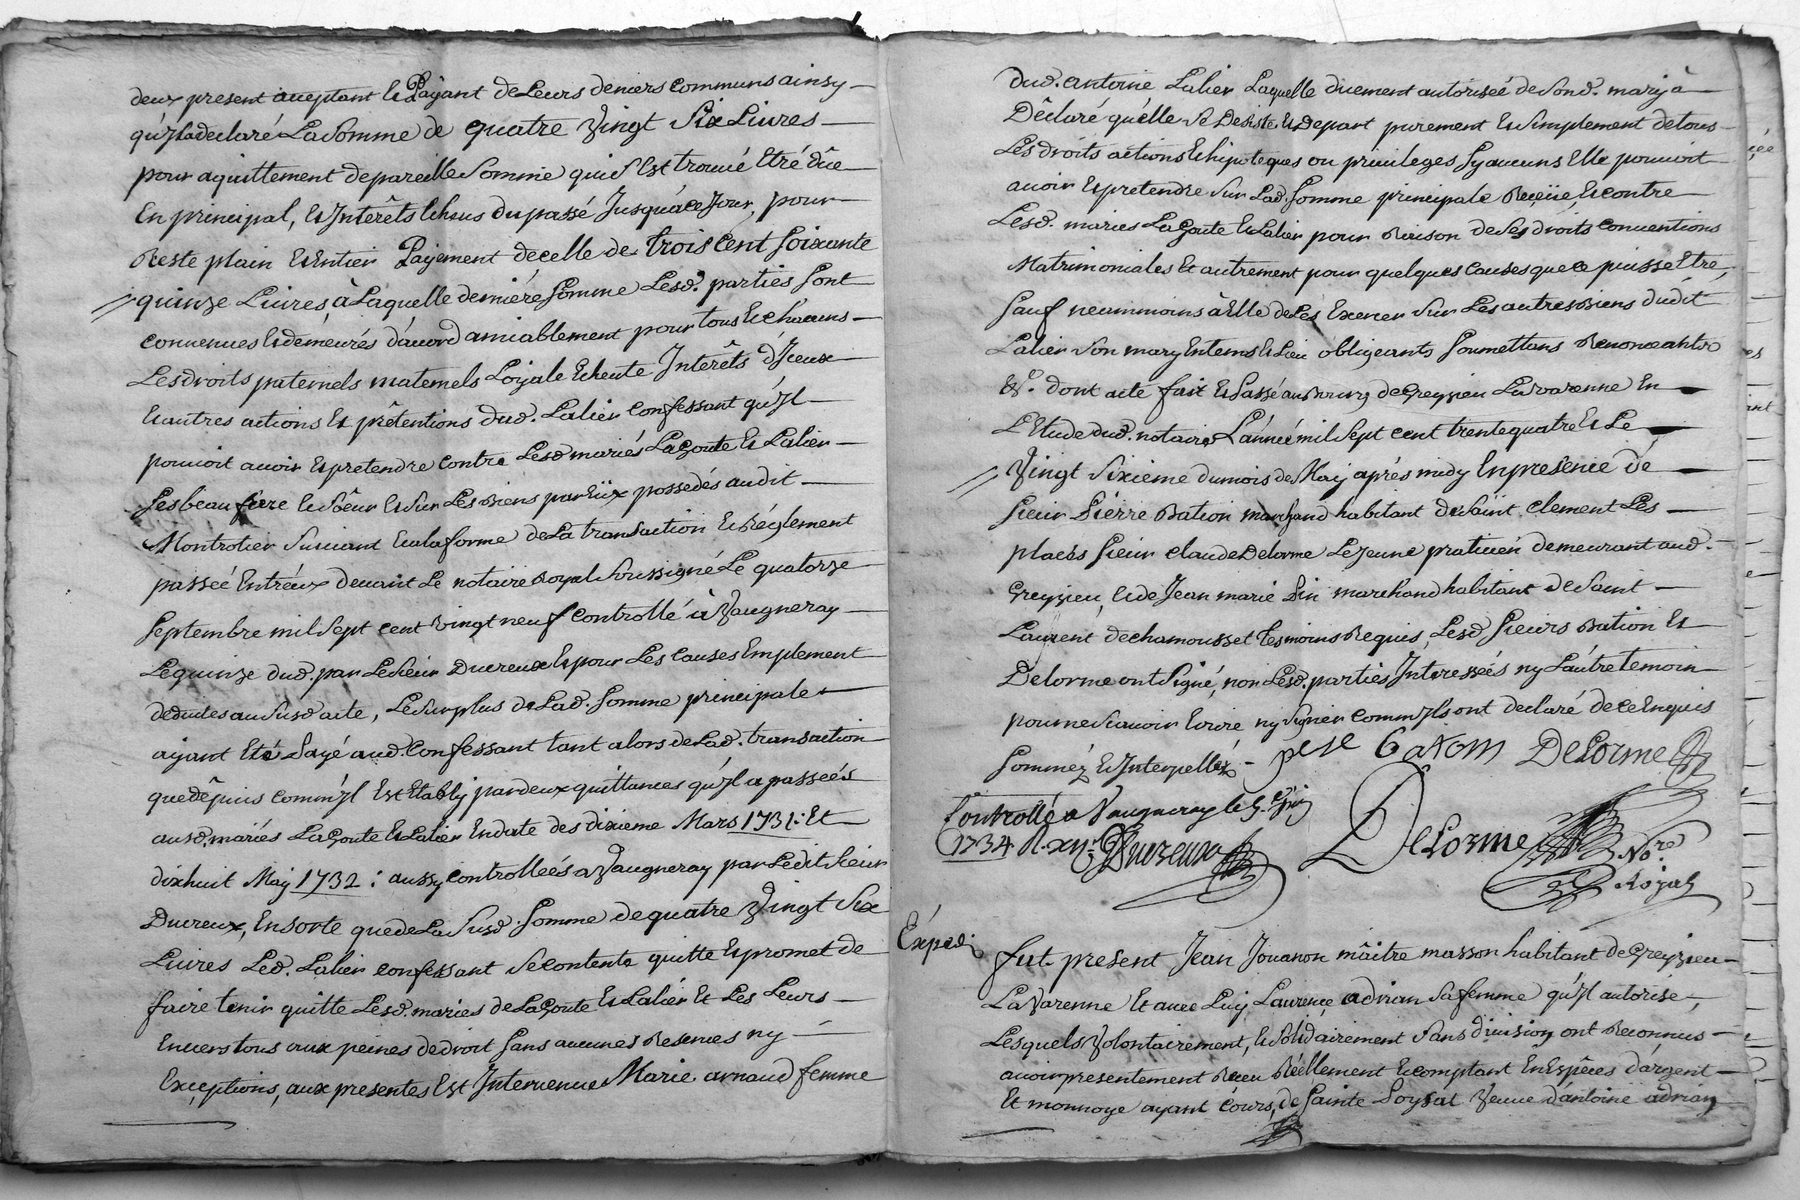 deux present aceptant et Païant de Leurs deniers communs ainsy
qu'Il a declaré La Somme de quatre Vingt Six Livres
pour aquittement de pareille Somme qui S'Est trouvé Etré dûe
En principal, et Interêts Echeus du passé Jusqu'à ce Jour, pour
Reste plain et Entier Paÿement de celle de trois cent soixante
quinze Livres, à Laquelle derniére Somme Lesd. parties Sont
convenues et demeurés d'acord amiablement pour tous et chacuns
Les droits paternels maternels Loÿale Echeute Interêts d'Iceux
et autres actions et prêtentions dud. Lalier confessant qu'Il
pouvoit avoir et pretendre contre Lesd mariés La Goute et Lalier
Ses beau frere et Sœur et Sur Les Biens par Eux possedés audit
Montrotier Suivant et a la forme de La transaction et Réglement
passeé Entréux devant Le notaire Royal Soussigné Le quatorze
Septembre mil Sept cent vingt neuf Controllé à Vaugneray
Le quinze dud. par Le Sieur Ducreux et pour Les causes Emplement
deduites au Susd acte, Le Surplus de Lad. Somme principale
aÿant Eté Payé aud. Confessant tant alors de Lad. transaction
que dêpuis comm'Il Est Etablÿ par deux quittances qu'Il a passeés
ausd. mariés La Goute et Lalier En date des dixieme Mars 1731: Et
dixhuit Maÿ 1732: aussy controlleés a Vaugneray par Ledit Sieur
Ducreux, En sorte que de La Susd. Somme de quatre Vingt Six
Livres Led. Lalier confessant Se contente quitte et promet de
faire tenir quitte Lesd. maries de La Goute et Lalier Et Les Leurs
Envers tous aux peines de droit Sans aucunes Reserves ny
Exceptions, aux presentes Est Intervenue Marie arnaud femme
dud. antoine Lalier Laquelle duement autoriseé de Sond. mary à
Dêclaré qu'elle Se Desiste et Depart purement et Simplement de tous
Les droits actions et hipoteques ou privileges Sy aucuns Elle pouvoit
avoir et pretendre Sur Lad. Somme principale Reçüe et contre
Lesd. maries La Goute et Lalier pour Raison de Ses droits conventions
Matrimoniales Et autrement pour quelques causes que ce puisse Etre,
Sauf neammoins à Elle de Les Exercer Sur Les autres Biens dudit
Lalier Son mary En tems et Lieu obligeants Soumettans Renonceants
&c. dont acte fait et Passé au Bourg de Greyzieu La Varenne En
L'Etude dud. notaire L'anneé mil Sept cent trente quatre et Le
Vingt Sixieme du mois de Maÿ aprés midy En presence de
Sieur Piérre Bation marchand habitant de Saint Clement Les
places Sieur Claude Delorme Le Jeune praticien demeurant aud.
Greyzieu, et de Jean marie Pin marchand habitant de Saint
Laurent de chamousset tesmoins Requis, Lesd. Sieurs Bation Et
Delorme ont Signé, non Lesd. parties Interesseés ny L'autre temoin
pour ne Scavoir Ecrire ny Signer comm'Ils ont declaré de ce Enquis
Sommez et Interpellés
Delorme
Controllé a Vaugneray le
1734 Ducreux
Delorme
No.re
Roÿal
Expedi
fut present Jean Jouanon mâitre masson habitant de Greyzieu
La Varenne Et avec Luÿ Laurence adrian Sa femme qu'Il autorise,
Lesquels Volontairement, et Solidairement Sans division ont Reconnus
avoir presentement Receu Réellement et comptant En Espêces d'argent
Et monnoye ayant cours, de Sainte Loysat Veuve d'antoine adrian